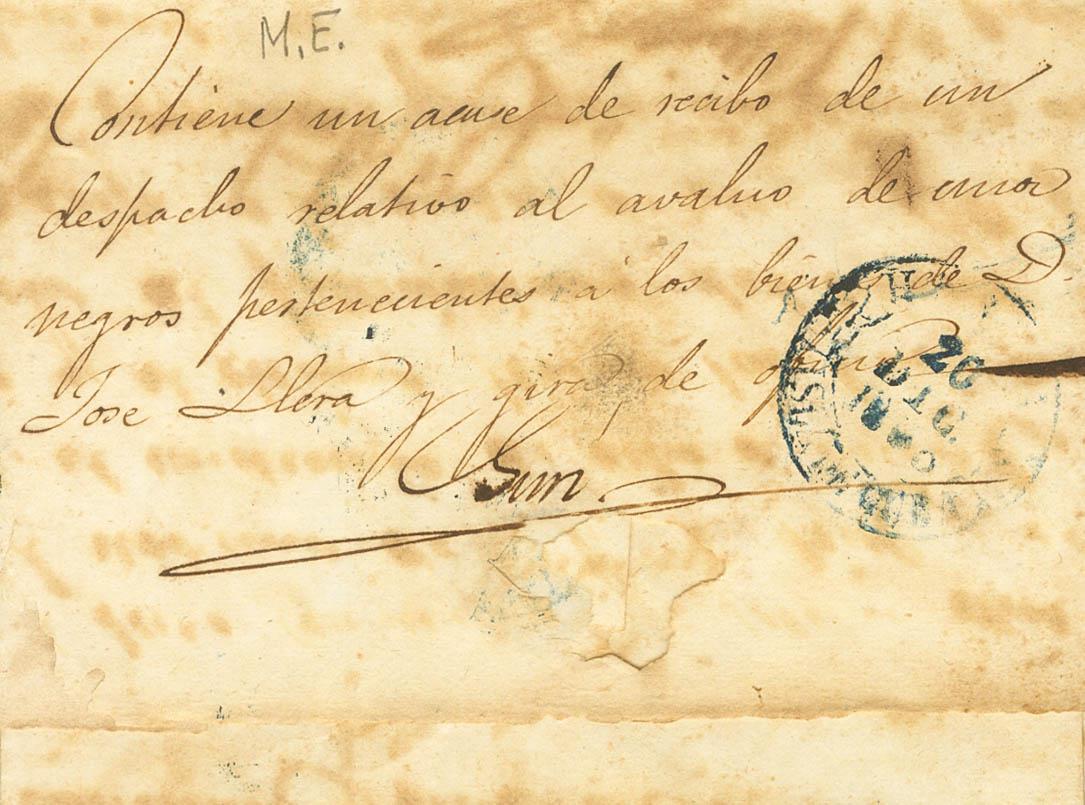 M.E.
Contiene un acuse de recibo de un
despacho relativo al avaluo de unos
negros pertenecientes á los bienes de D.
Jose Llera y gira de oficio
20